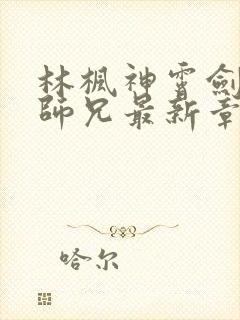 林楓神霄劍
師兄最新章
哈尔